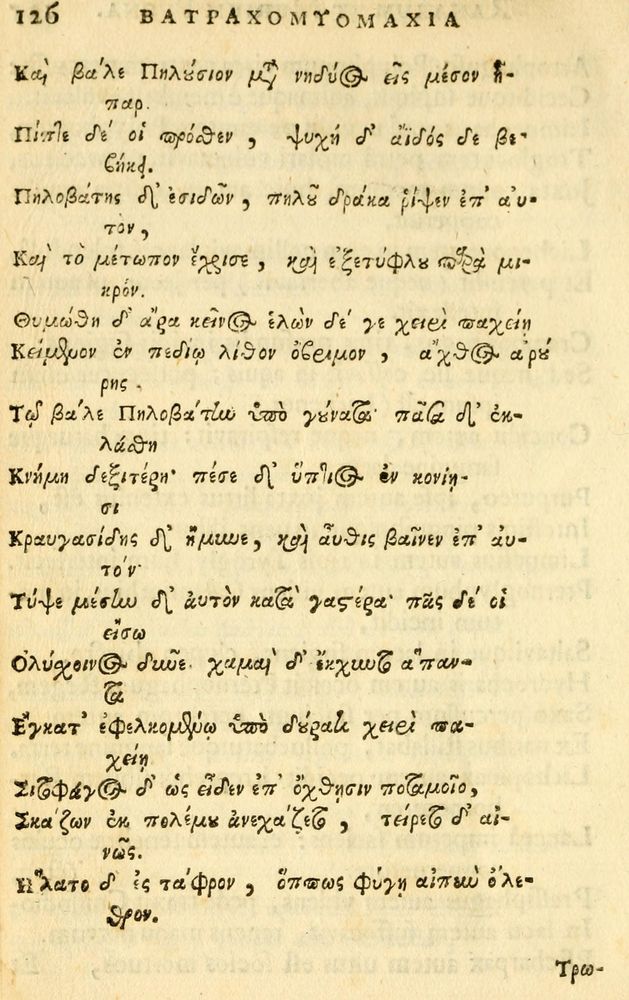 126 ΒΑΤΡΑΧΟΜΥΟΜΑΧΙΑ
Καὶ βάλε Πηλούσιον μὲν νηδύος εἰς μέσον ἧ-
παρ.
Πίπτε δέ οἱ πρόσθεν, ψυχή δ' ἀϊδός δε βε-
βήκει.
Πηλοβάτης δ' ἐσιδὼν, πηλοῦ δράκα ῥίψεν ἐπ' αυ-
τὸν,
Καὶ τὸ μέτωπον ἔχρισε, καὶ ἐξετύφλου παρὰ μι-
κρόν.
Θυμώθη δ' ἄρα κεῖνος ἑλὼν δέ γε χειρὶ παχείῃ
Κείμενον ἐν πεδίῳ λίθον ὄβριμον, ἄχθος ἀρού
ρης.
Τῷ βάλε Πηλοβάτην ὑπὸ γούνατα· πᾶσα δ' ἐκ-
λάσθη
Κνήμη δεξιτέρη· πέσε δ' ὕπτιος ἐν κονίῃ-
σι
Κραυγασίδης δ' ἤμυνε, καὶ αὖθις βαῖνεν ἐπ' αυ-
τόν·
Τύψε μέσην δ' αὐτὸν κατὰ γαστέρα· πᾶς δέ οἱ
εἴσω
Ὀξύσχοινος δῦνε· χαμαὶ δ' ἔκχυντο ἅπαν-
τα
Ἔγκατ' ἐφελκομένῳ ὑπὸ δούρατι χειρὶ πα-
χείῃ
Σιτοφάγος δ' ὡς εἶδεν ἐπ' ὄχθῃσιν ποταμοῖο,
Σκάζων ἐκ πολέμου ἀνεχάζετο, τείρετο δ' αἰ-
νῶς.
Ἥλατο δ' ἐς τάφρον, ὅππως φύγῃ αἰπὺν ὄλε-
θρον.
Τρω-